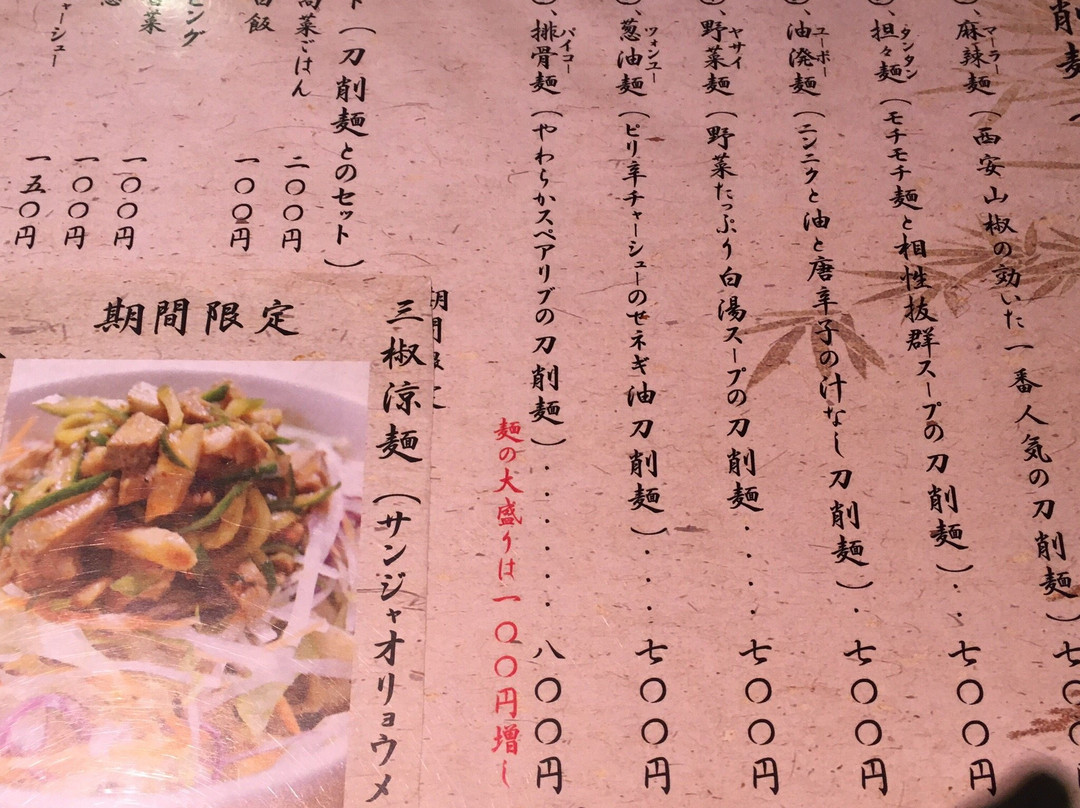 削麺
麻辣麺(西安山椒の効いた一番人気の刀削麺)
マーラー
七〇〇円
担々麺(モチモチ麺と相性抜群スープの刀削麺)・・七〇〇円
タンタン
油溌麺(ニンニクと油と唐辛子の汁なし刀削麺)・七〇〇円
ユーポー
野菜麺(野菜たっぷり白湯スープの刀削麺・・・七〇〇円
ヤサイ
葱油麺(ピリ辛チャーシューのせネギ油刀削麺)・・・七〇〇円
ツォンユー
排骨麺(やわらかスペアリブの刀削麺)・・・・・・八〇〇円
パイコー
麺の大盛りは一〇〇円増し
ト(刀削麺とのセット)
高菜ごはん
二〇〇円
飯
一〇〇円
ング
菜
一〇〇円
一〇〇円
ャーシュー
一五〇円
期間限定
三椒涼麺(サンジャオリョウメ